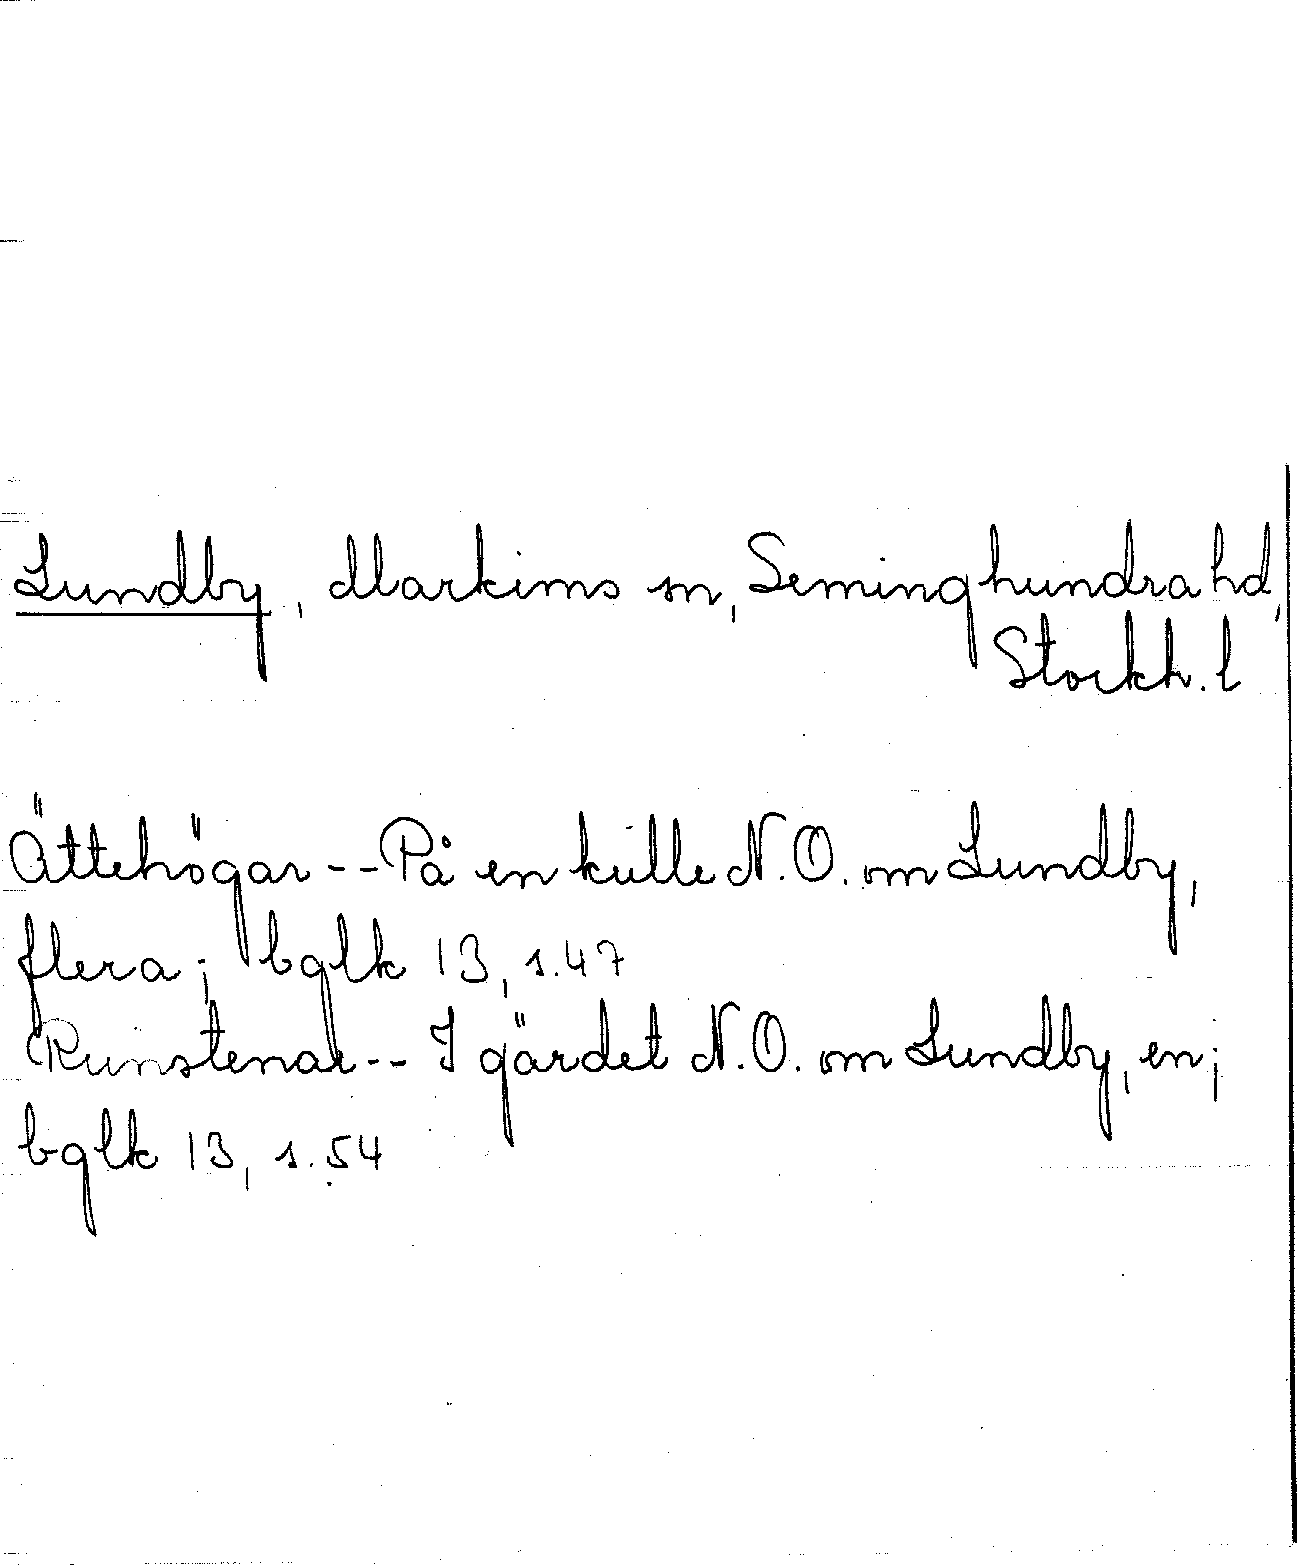 Lundby, Markims sn, Seminghundra hd,
Stockh. l
Ättehögar -- På en kulle N.O. om Lundby,
flera; bglk 13, s. 47
Runstenar -- I gärdet N.O. om Lundby, en;
bglk 13, s. 54